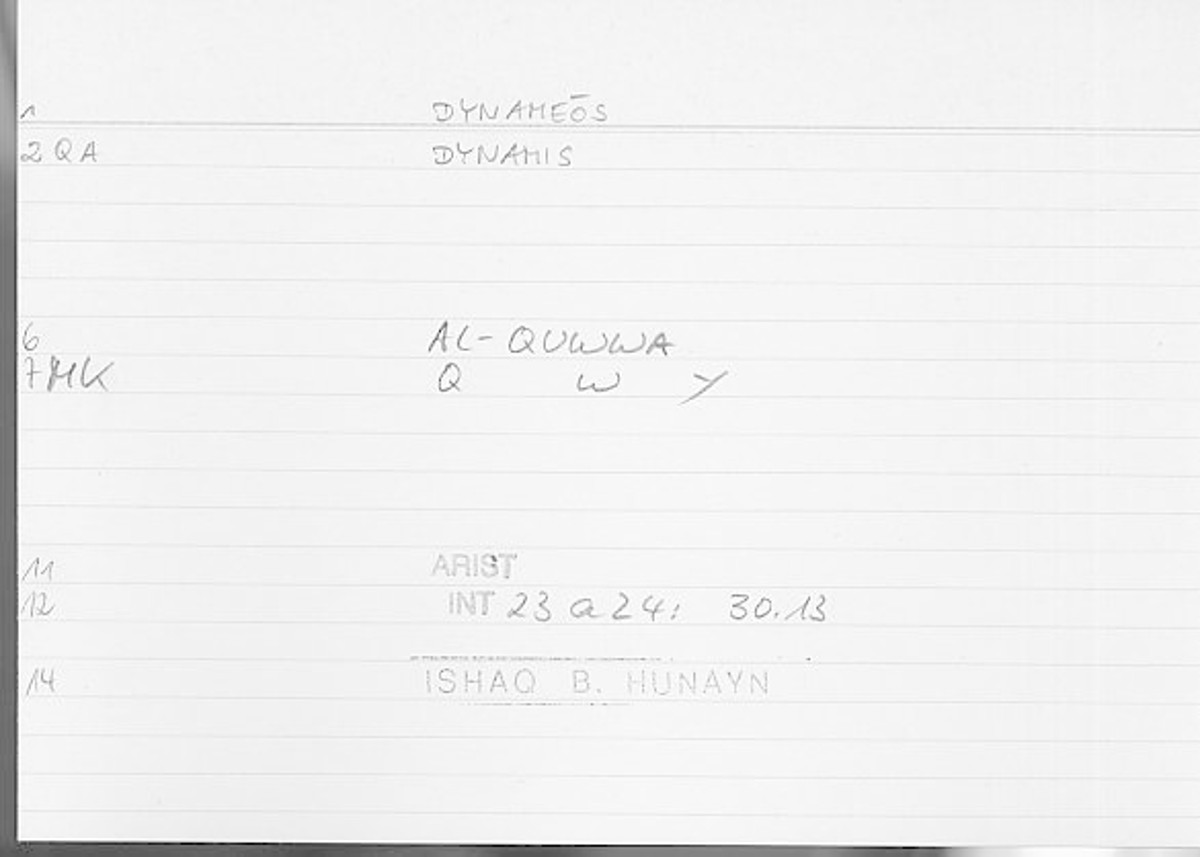 1 DYNAMEŌS
2 QA DYNAMIS
6 AL-QUWWA
7 MK Q W Y
11 ARIST
12 INT 23 a 24: 30.13
14 ISHAQ B. HUNAYN